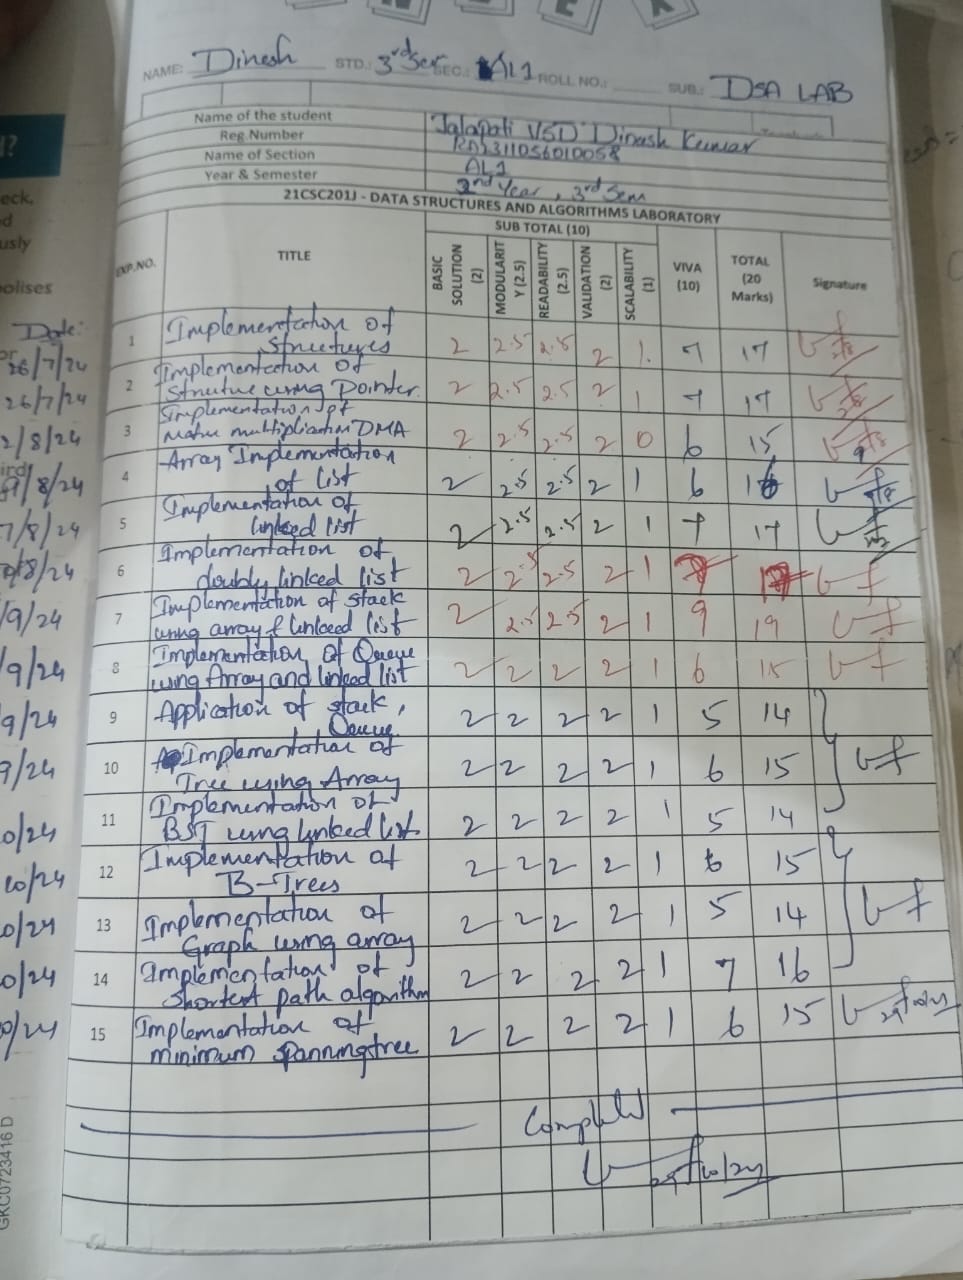 NAME: Dinesh STD.: 3rd Sem SEC.: AL1 ROLL NO.: SUB.: DSA LAB
Name of the student Jalapati VSD Dinesh Kumar
Reg.Number
Name of Section AL1
Year & Semester 2nd Year, 3rd Sem
21CSC201J - DATA STRUCTURES AND ALGORITHMS LABORATORY
EXP.NO. TITLE SUB TOTAL (10) VIVA (10) TOTAL (20 Marks) Signature
BASIC SOLUTION (2) MODULARIT Y (2.5) READABILITY (2.5) VALIDATION (2) SCALABILITY (1)
Date:
1 Implementation of
Structures 2 2.5 2.5 2 1. 7 17
26/7/24
2 Implementation of
Structure using Pointer. 2 2.5 2.5 2 1 7 17
26/7/24
3 Implementation of
Matrix multiplication DMA 2 2.5 2.5 2 0 6 15
2/8/24
4 Array Implementation
of List 2 2.5 2.5 2 1 6 16
/8/24
5 Implementation of
linked list 2 2.5 2.5 2 1 7 17
7/8/24
6 Implementation of
doubly linked list 2 2.5 2.5 2 1
/8/24
7 Implementation of stack
using array & linked list 2 2.5 2.5 2 1 9 19
/9/24
8 Implementation of Queue
using Array and linked list 2 2 2 2 1 6 15
/9/24
9 Application of stack,
Queue 2 2 2 2 1 5 14
9/24
10 Implementation of
Tree using Array 2 2 2 2 1 6 15
9/24
11 Implementation of
BST using linked list 2 2 2 2 1 5 14
0/24
12 Implementation of
B-Trees 2 2 2 2 1 6 15
10/24
13 Implementation of
Graph using array 2 2 2 2 1 5 14
0/24
14 Implementation of
Shortest path algorithm 2 2 2 2 1 7 16
0/24
15 Implementation of
minimum spanning tree 2 2 2 2 1 6 15
0/24
Completed
GKC0723416 D